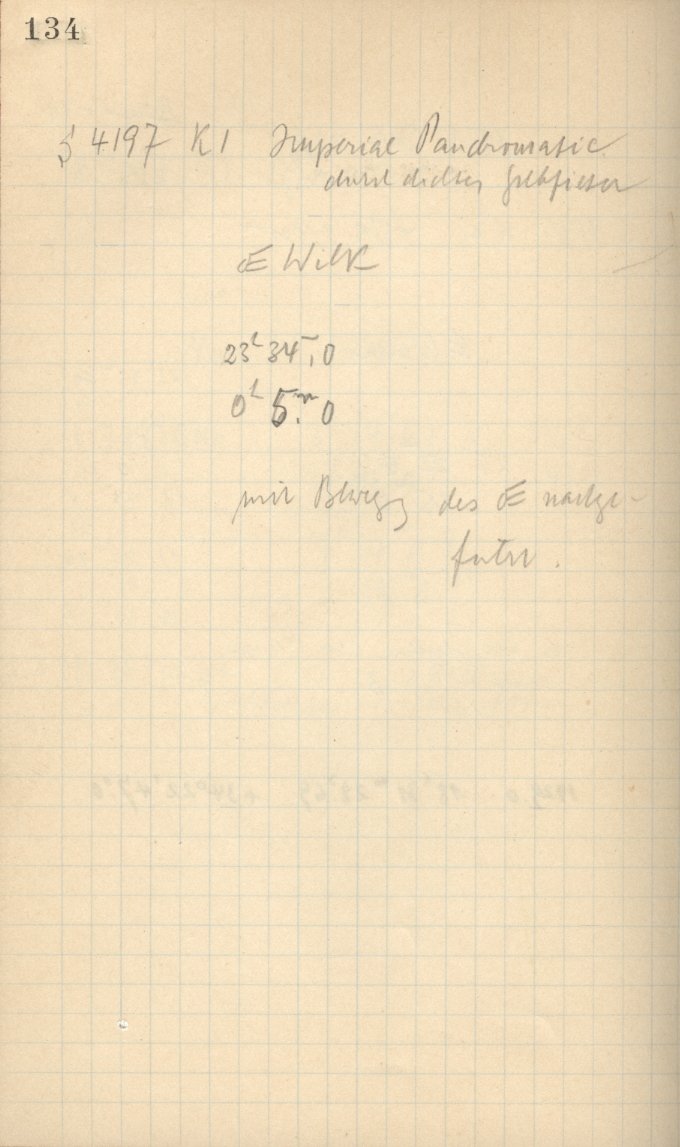 134
4197 K 1 Imperial Pandromatic
durch dichtes Gelbfilter
☄ Wilk
23ʰ 34ᵐ,0
0ʰ 5ᵐ,0
mit Bewegg des ☄ nachge-
führt.